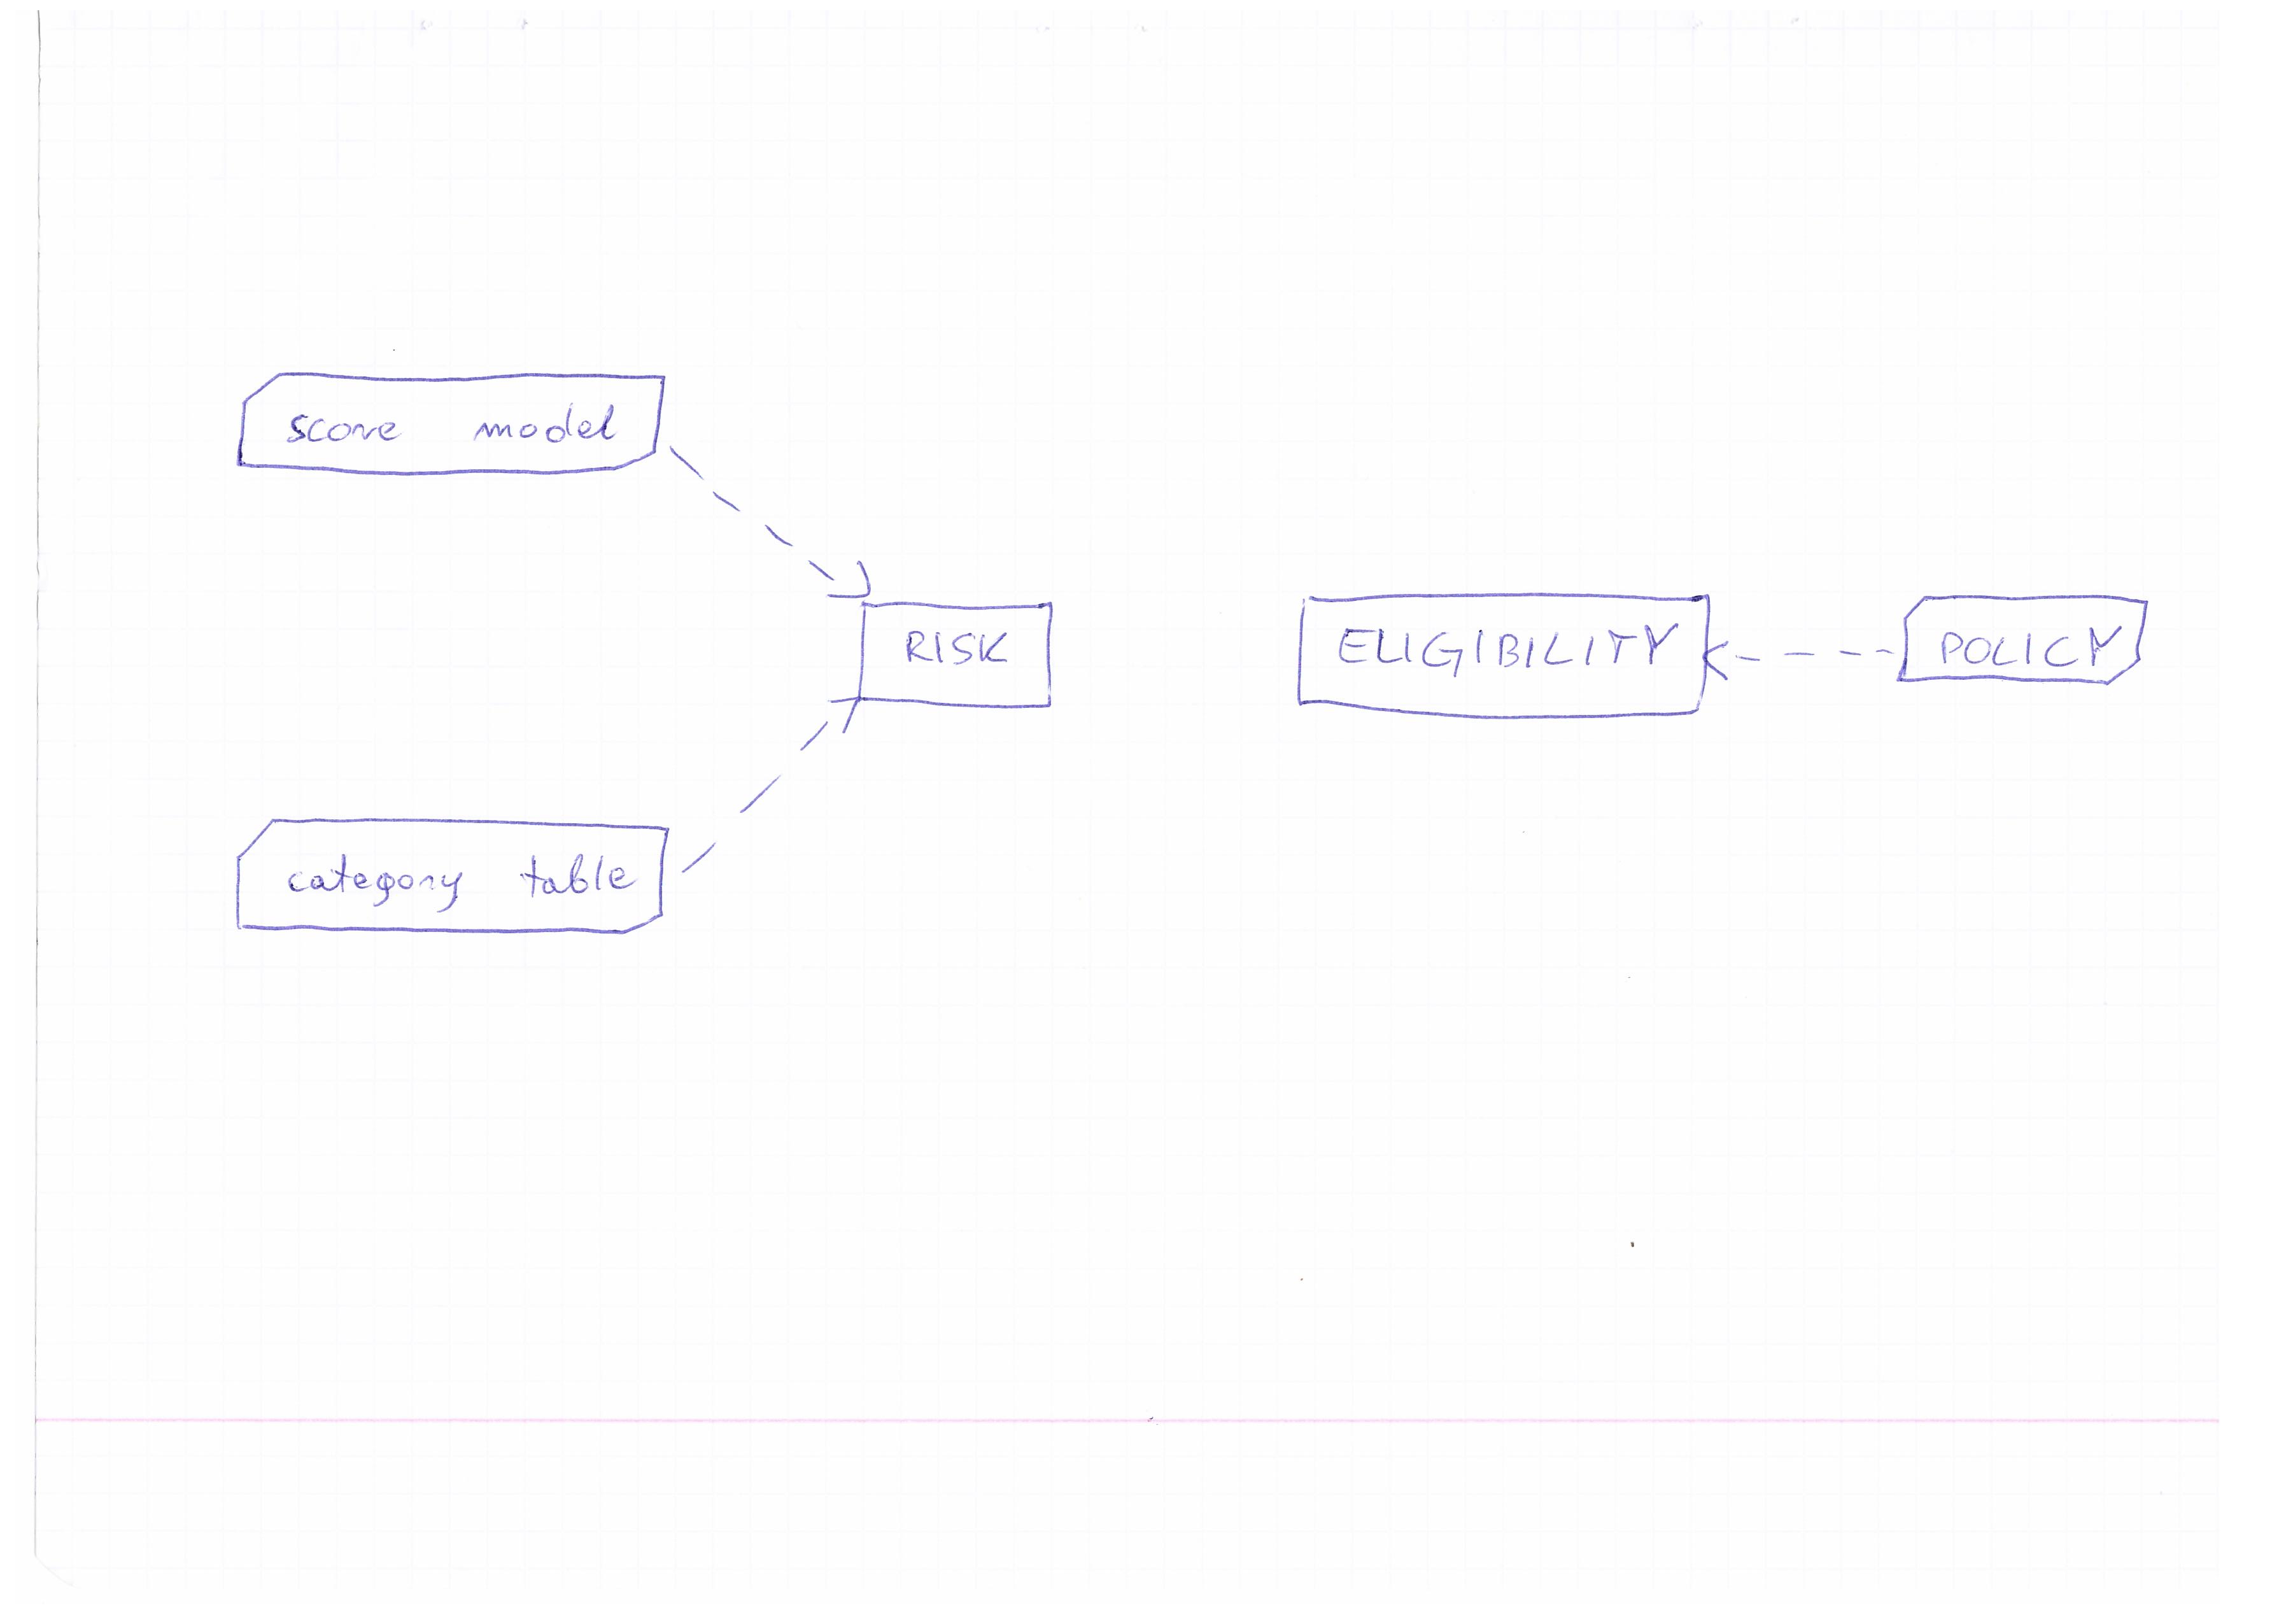 score model
RISK
ELIGIBILITY
POLICY
category table